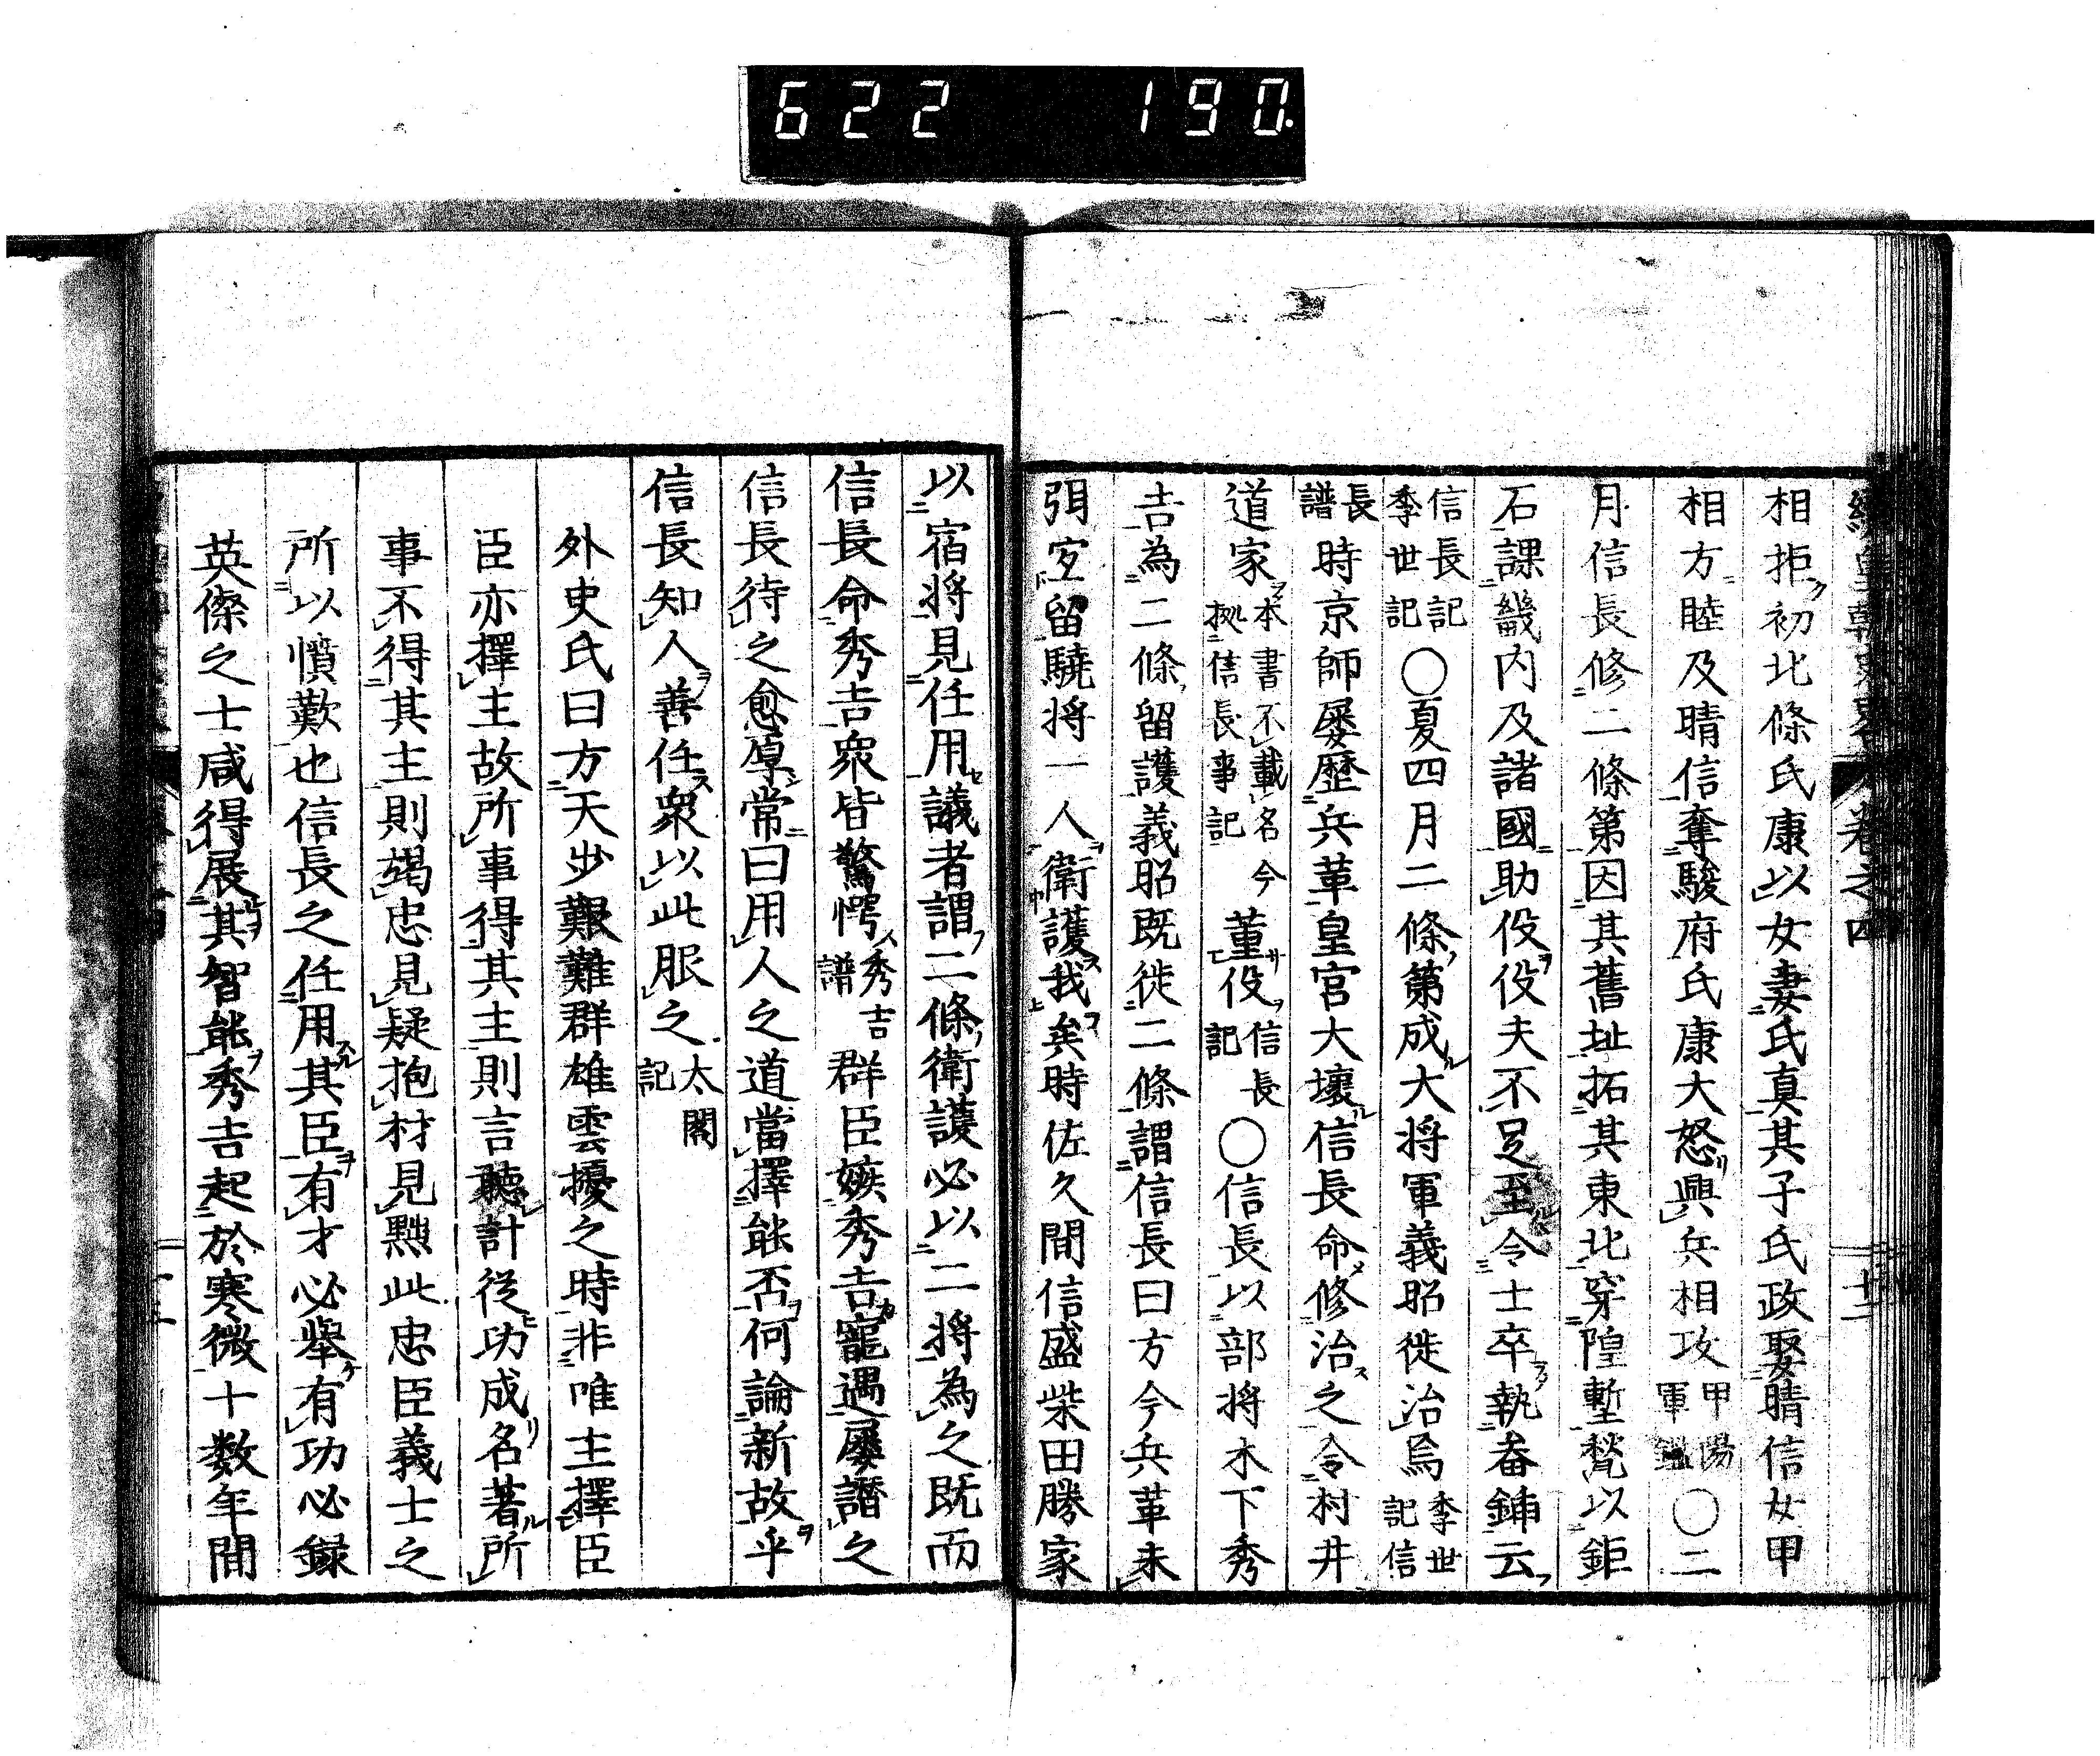 622 190.
續皇朝史畧 卷之四 十二
相拒初北條氏康以女妻氏真其子氏政娶晴信女甲
相方睦及晴信奪駿府氏康大怒興兵相攻甲陽軍鑑〇二
月信長修二條第因其舊址拓其東北穿隍塹甃以鉅
石課畿内及諸國助役役夫不足至令士卒執畚鍤云
信長記季世記〇夏四月二條第成大将軍義昭徙治焉季世記信
長譜時京師屡歴兵革皇宮大壞信長命修治之令村井
道家本書不載名今拠信長事記董役信長記〇信長以部将木下秀
吉為二條留護義昭既徙二條謂信長曰方今兵革未
弭宜留驍将一人衛護我矣時佐久間信盛柴田勝家
以宿将見任用議者謂二條衛護必以二将為之既而
信長命秀吉衆皆驚愕秀吉譜群臣嫉秀吉寵遇屡譖之
信長待之愈厚常曰用人之道當擇能否何論新故乎
信長知人善任衆以此服之太閤記
外史氏曰方天歩艱難群雄雲擾之時非唯主擇臣
臣亦擇主故所事得其主則言聽計從功成名著所
事不得其主則竭忠見疑抱材見黜此忠臣義士之
所以憤歎也信長之任用其臣有才必擧有功必録
英傑之士咸得展其智能秀吉起於寒微十数年間